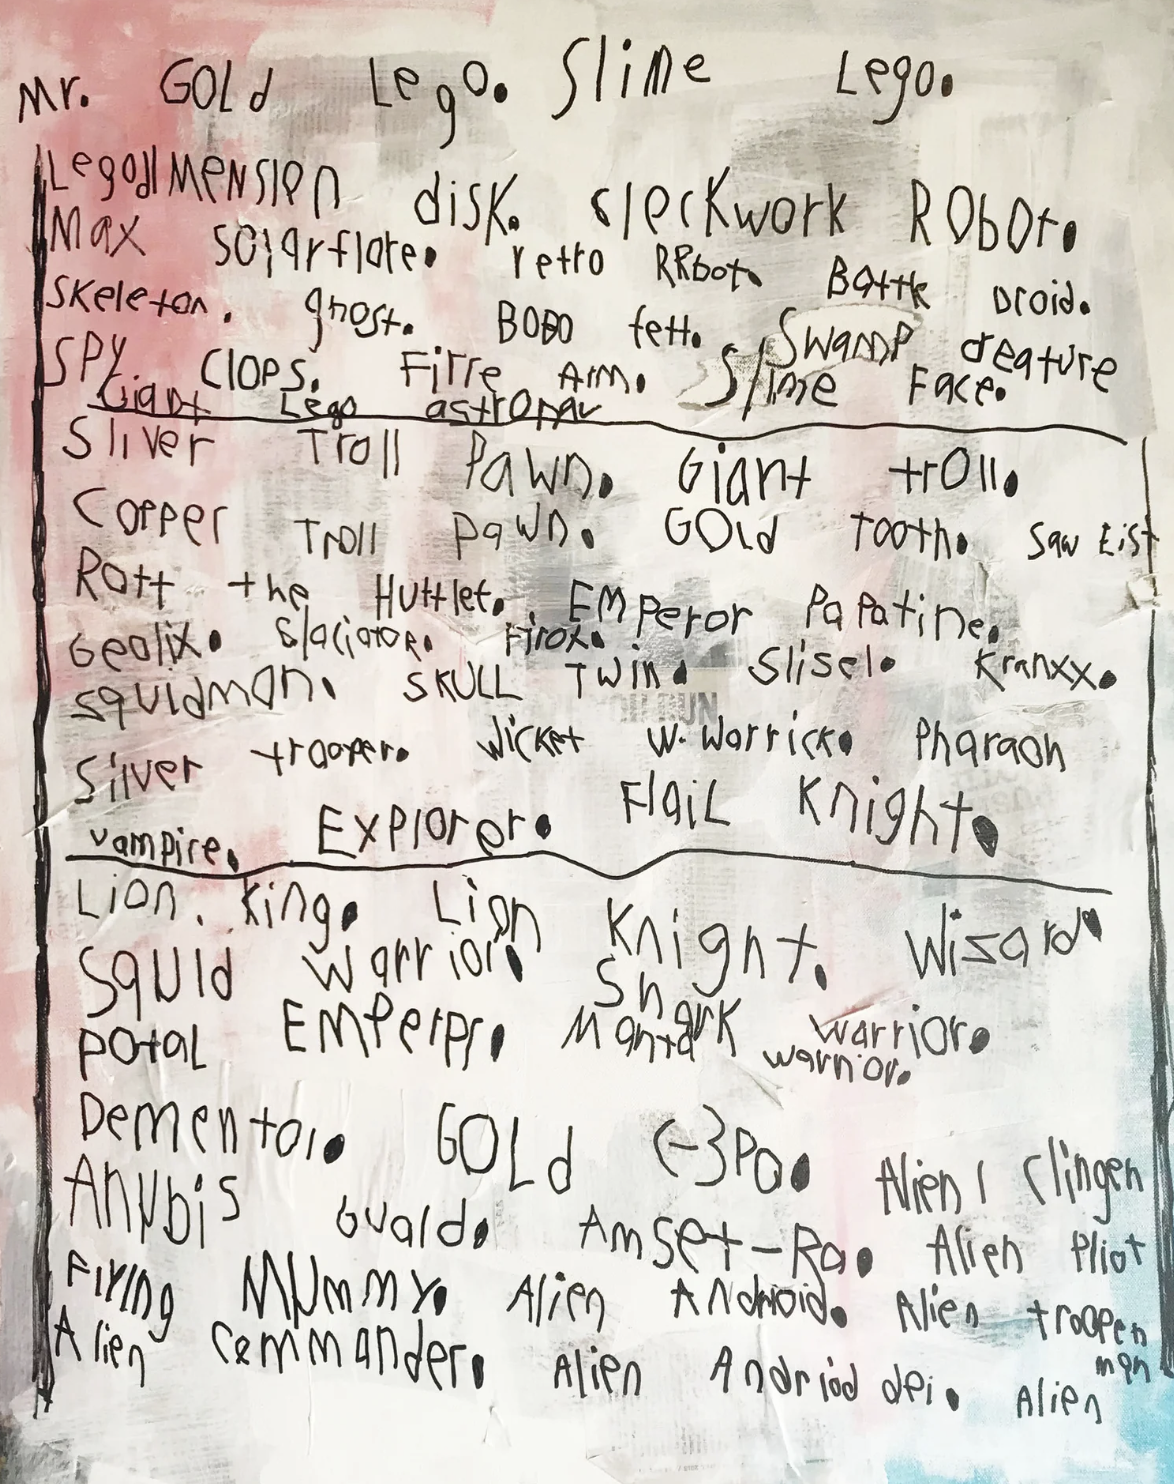 Mr. GOLd Lego. Slime Lego.
LegodIMENSION disk. clockwork RObOt.
Max solarflare. retro RRbot. Battle Droid.
Skeleton. ghost. BOBO fett. Swamp creature
SPY Clops. Firre Arm. Slime Face.
Giant Lego astronav
Sliver Troll Pawn. Giant trOll.
Copper Troll pawn. GOLd Tooth. Saw Eist
Rott the Huttlet. EMPeror PaPatine.
Geolix. Glaciator. Firox.
squidman. SKULL Twin. Slisel. Kranxx.
Silver trooper. Wicket W. Warrick. Pharaoh
vampire. Explorer. FlaiL Knight.
Lion. King. Lion Knight. Wizard.
Squid Warrior. Shark warrior.
Potal EMPerpr. Manta warrior.
Dementor. GOLd C-3Po. Alien Clingen
Anubis Guald. Amset-Ra. Alien Pliot
Flying Mummy. Alien Android. Alien troopen
Alien Commander. Alien Andriod dei. Alien
man